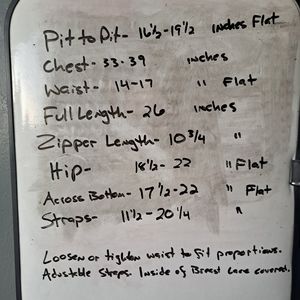 Pit to Pit- 16½-19½ Inches Flat
Chest- 33-39 inches
Waist- 14-17 " Flat
Full Length- 26 inches
Zipper Length- 10 3/4 "
Hip- 18½-22 " Flat
Across Bottom- 17½-22 " Flat
Straps- 11½-20¼ "
Loosen or tighten waist to fit proportions.
Adjustble Straps. Inside of Breast are covered.